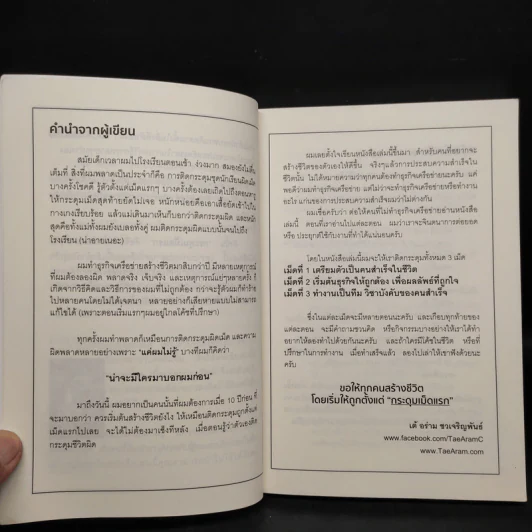 คำนำจากผู้เขียน
สมัยเด็กเวลาผมไปโรงเรียนตอนเช้า ง่วงมาก สมองยังไม่ตื่น
เต็มที่ สิ่งที่ผมพลาดเป็นประจำก็คือ การติดกระดุมชุดนักเรียนผิดเม็ด
บางครั้งโชคดี รู้ตัวตั้งแต่เม็ดแรกๆ บางครั้งต้องเลยเถิดไปถึงตอนจะ
ให้กระดุมเม็ดสุดท้ายยัดไม่เจอ หนักหน่อยคือเอาเสื้อยัดเข้าไปใน
กางเกงเรียบร้อย แล้วแม่เดินมาเห็นก็บอกว่าติดกระดุมผิด และหนัก
สุดคือทั้งแม่ทั้งผมยังเบลอทั้งคู่ ผมติดกระดุมผิดแบบนั้นจนไปถึง
โรงเรียน (น่าอายเนอะ)
ผมทำธุรกิจเครือข่ายสร้างชีวิตมาสิบกว่าปี มีหลายเหตุการณ์
ที่ผมต้องลองผิด พลาดจริง เจ็บจริง และเหตุการณ์แย่ๆหลายครั้ง ก็
เกิดจากวิธีคิดและวิธีการของผมที่ไม่ถูกต้อง กว่าจะรู้ตัวผมก็ทำร้าย
ไปหลายคนโดยไม่ได้เจตนา หลายอย่างก็เสียหายแบบไม่สามารถ
แก้ไขได้ (เพราะตอนเริ่มแรกๆผมอยู่ไกลโค้ชที่ปรึกษา)
ทุกครั้งผมทำพลาดก็เหมือนการติดกระดุมผิดเม็ด และความ
ผิดพลาดหลายอย่างเพราะ "แค่ผมไม่รู้" บางทีผมก็คิดว่า
"น่าจะมีใครมาบอกผมก่อน"
มาถึงวันนี้ ผมอยากเป็นคนนั้นที่ผมต้องการเมื่อ 10 ปีก่อน ที่
จะมาบอกว่า ควรเริ่มต้นสร้างชีวิตยังไง ให้เหมือนติดกระดุมถูกตั้งแต่
เม็ดแรกไปเลย จะได้ไม่ต้องมาเซ็งทีหลัง เมื่อตอนรู้ว่าตัวเองติด
กระดุมชีวิตผิด
ผมเลยตั้งใจเขียนหนังสือเล่มนี้ขึ้นมา สำหรับคนที่อยากจะ
สร้างชีวิตของตัวเองให้ดีขึ้น จริงๆแล้วการประสบความสำเร็จใน
ชีวิตนั้น ไม่ได้หมายความว่าทุกคนต้องทำธุรกิจเครือข่ายนะครับ แค่
พอดีว่าผมทำธุรกิจเครือข่าย แต่ไม่ว่าจะทำธุรกิจเครือข่ายหรือทำงาน
อะไร แก่นของการประสบความสำเร็จผมว่าไม่ต่างกัน
ผมเชื่อครับว่า ต่อให้คนที่ไม่ทำธุรกิจเครือข่ายอ่านหนังสือ
เล่มนี้ ตอนที่เราอ่านไปแต่ละตอน ผมว่าเราจะจินตนาการ ต่อยอด
หรือ ประยุกต์ใช้กับงานที่ทำได้แน่นอนครับ
โดยในหนังสือเล่มนี้ผมจะให้เราติดกระดุมทั้งหมด 3 เม็ด
เม็ดที่ 1 เตรียมตัวเป็นคนสำเร็จในชีวิต
เม็ดที่ 2 เริ่มต้นธุรกิจให้ถูกต้อง เพื่อผลลัพธ์ที่ถูกใจ
เม็ดที่ 3 ทำงานเป็นทีม วิชาบังคับของคนสำเร็จ
ซึ่งในแต่ละเม็ดจะมีหลายตอนนะครับ และเกือบทุกท้ายของ
แต่ละตอน จะมีคำถามชวนคิด หรือกิจกรรมบางอย่างให้เราได้ทำ
อยากให้ลองทำไปด้วยกันนะครับ และถ้าใครมีโค้ชในชีวิต หรือที่
ปรึกษาในการทำงาน เมื่อทำเสร็จแล้ว ลองไปเล่าให้เขาฟังด้วยนะ
ครับ
ขอให้ทุกคนสร้างชีวิต
โดยเริ่มให้ถูกตั้งแต่ "กระดุมเม็ดแรก"
เต้ อร่าม ชวเจริญพันธ์
www.facebook.com/TaeAramC
www.TaeAram.com